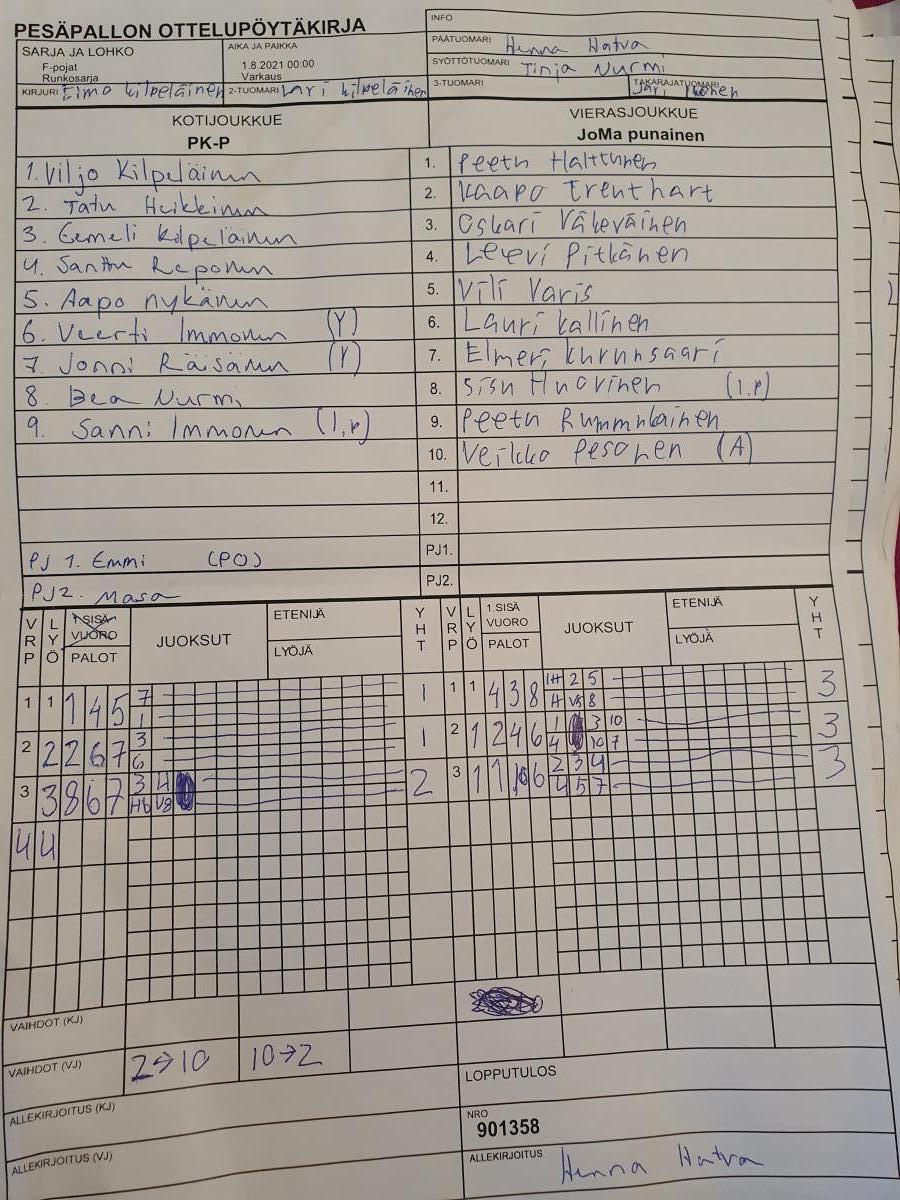 PESÄPALLON OTTELUPÖYTÄKIRJA
INFO
SARJA JA LOHKO
F-pojat
Runkosarja
AIKA JA PAIKKA
1.8.2021 00:00
Varkaus
PÄÄTUOMARI Henna Hatva
SYÖTTÖTUOMARI Tinja Nurmi
KIRJURI Eimo Kilpeläinen 2-TUOMARI Vari Kilpeläinen 3-TUOMARI TAKARAJATUOMARI Jari
KOTIJOUKKUE
PK-P
VIERASJOUKKUE
JoMa punainen
1. Viljo Kilpeläinen
1. Peetu Halttunen
2. Tatu Heikkinen
2. Kaapo Erenthart
3. Eemeli Kilpeläinen
3. Oskari Väkeväinen
4. Santtu Reponen
4. Leevi Pitkänen
5. Aapo nykänen
5. Vili Varis
6. Veerti Immonen (Y)
6. Lauri Kallinen
7. Jonni Räisänen (Y)
7. Elmeri Kurunsaari
8. Bea Nurmi
8. Sisu Huovinen (1.p)
9. Sanni Immonen (1.p)
9. Peetu Rummukainen
10. Veikko Pesonen (A)
11.
12.
PJ 1. Emmi (PO)
PJ1.
PJ2. Masa
PJ2.
VRP LYÖ 1.SISÄ VUORO PALOT JUOKSUT ETENIJÄ LYÖJÄ YHT
VRP LYÖ 1.SISÄ VUORO PALOT JUOKSUT ETENIJÄ LYÖJÄ YHT
1 1 1 4 5 7 1
1
1 1 4 3 8 1H 2 5 3
H V8 8
2 2 2 6 7 3 1
6
2 1 2 4 6 1 3 10 3
4 10 7
3 3 8 6 7 3 4 2
H6 V8
3 1 1 6 2 3 4 3
4 5 7
4 4
VAIHDOT (KJ)
VAIHDOT (VJ) 2→10 10→2
LOPPUTULOS
ALLEKIRJOITUS (KJ)
NRO
901358
ALLEKIRJOITUS (VJ)
ALLEKIRJOITUS Henna Hatva